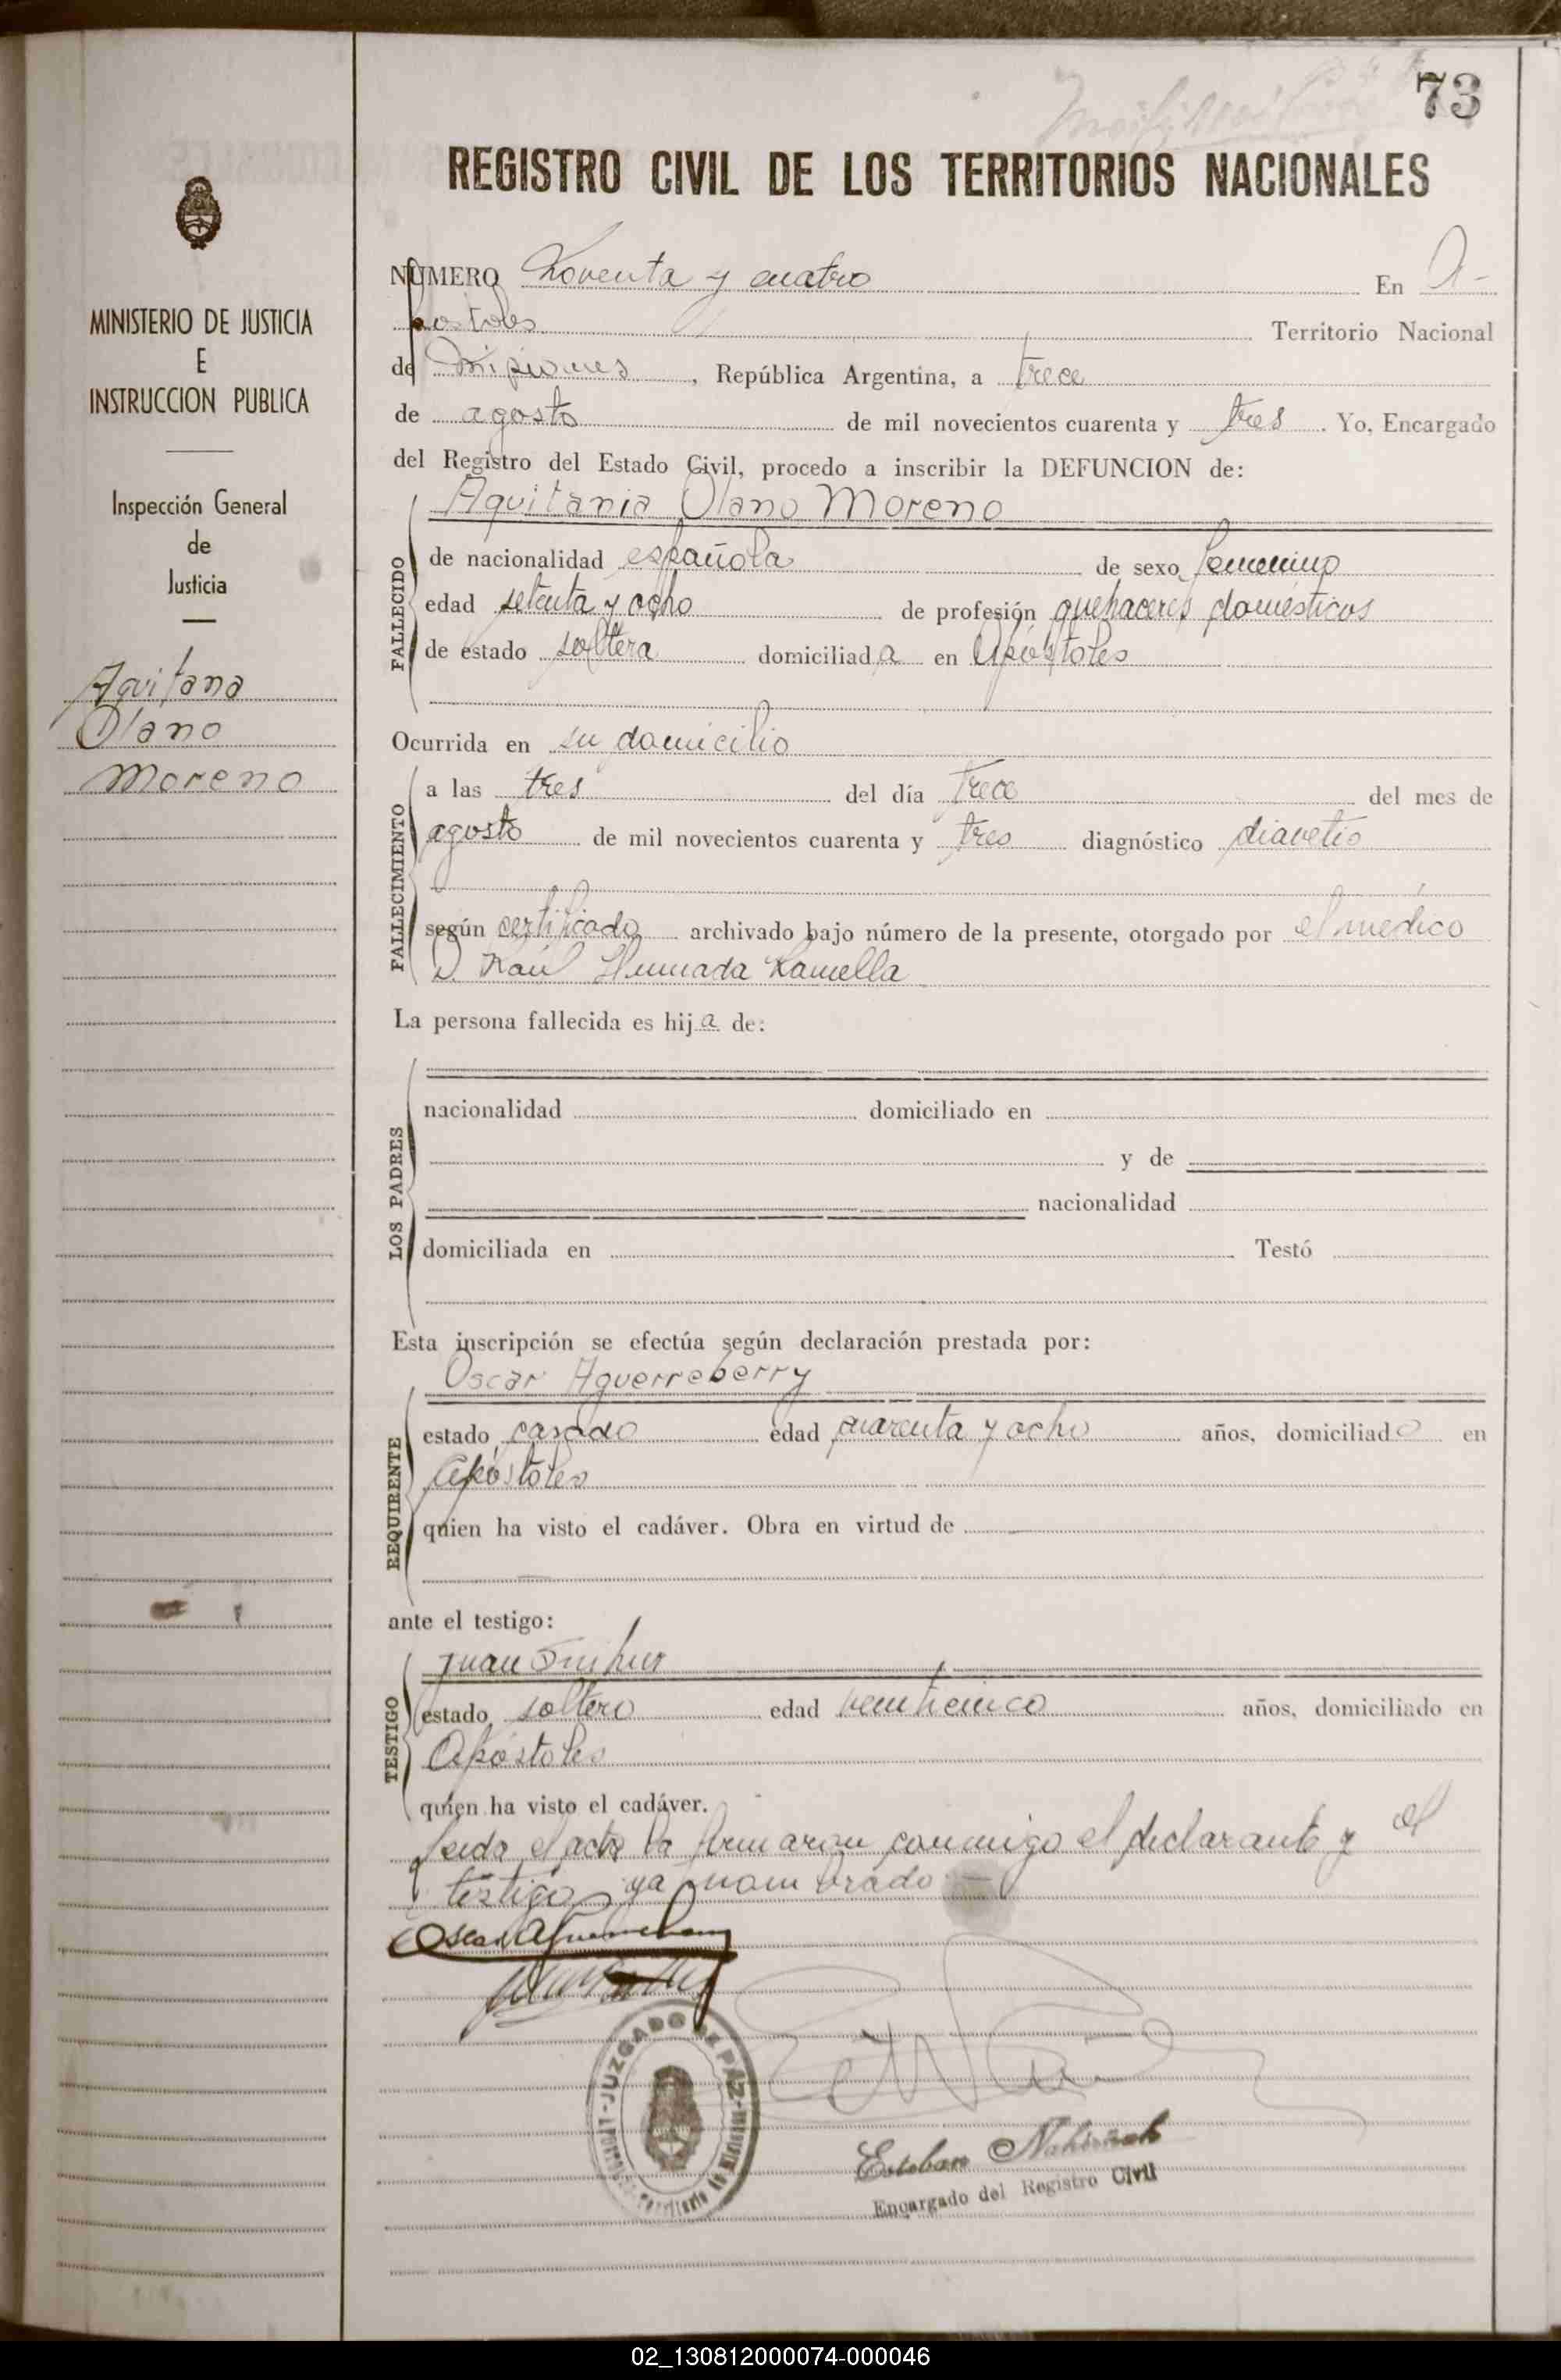 73
REGISTRO CIVIL DE LOS TERRITORIOS NACIONALES
MINISTERIO DE JUSTICIA
E
INSTRUCCION PUBLICA
Inspección General
de
Justicia
Aquitana
Olano
Moreno
NUMERO Noventa y cuatro En A-
postoles Territorio Nacional
de Misiones, República Argentina, a trece
de agosto de mil novecientos cuarenta y tres. Yo, Encargado
del Registro del Estado Civil, procedo a inscribir la DEFUNCION de:
FALLECIDO
Aquitania Olano Moreno
de nacionalidad española de sexo femenino
edad setenta y ocho de profesión quehaceres domésticos
de estado soltera domiciliada en Apóstoles
Ocurrida en su domicilio
FALLECIMIENTO
a las tres del día trece del mes de
agosto de mil novecientos cuarenta y tres diagnóstico diavetis
según certificado archivado bajo número de la presente, otorgado por el médico
D. Raúl
La persona fallecida es hija de:
LOS PADRES
nacionalidad domiciliado en
y de
nacionalidad
domiciliada en Testó
Esta inscripción se efectúa según declaración prestada por:
REQUIRENTE
Oscar Aguerreberry
estado casado edad cuarenta y ocho años, domiciliado en
Apóstoles
quien ha visto el cadáver. Obra en virtud de
ante el testigo:
TESTIGO
Juan
estado soltero edad veinticinco años, domiciliado en
Apóstoles
quien ha visto el cadáver.
Leida el acta la firmaron conmigo el declarante y el
testigo ya nombrado.-
JUZGADO DE PAZ
Esteban
Encargado del Registro Civil
02_130812000074-000046